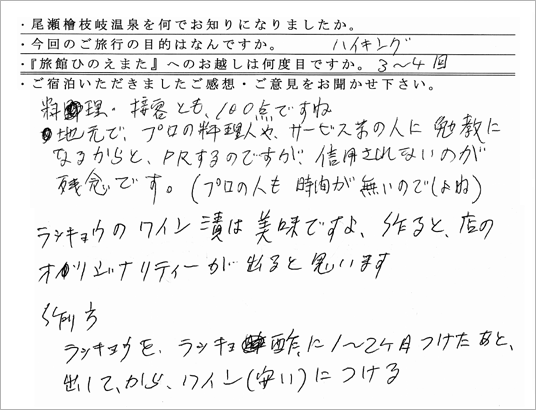 ・尾瀬檜枝岐温泉を何でお知りになりましたか。
・今回のご旅行の目的はなんですか。 ハイキング
・『旅館ひのえまた』へのお越しは何度目ですか。3〜4回
・ご宿泊いただきましたご感想・ご意見をお聞かせ下さい。
料理・接客とも、100点ですね
地元で、プロの料理人や、サービス業の人に勉教に
なるからと、PRするのですが、信用されないのが
残念です。(プロの人も時間が無いのでしょね)
ラッキョウのワイン漬は美味ですよ、作ると、店の
オリジナリティーが出ると思います
作り方
ラッキョウを、ラッキョ酢に1〜2ヶ月つけたあと、
出して、から、ワイン(安い)につける